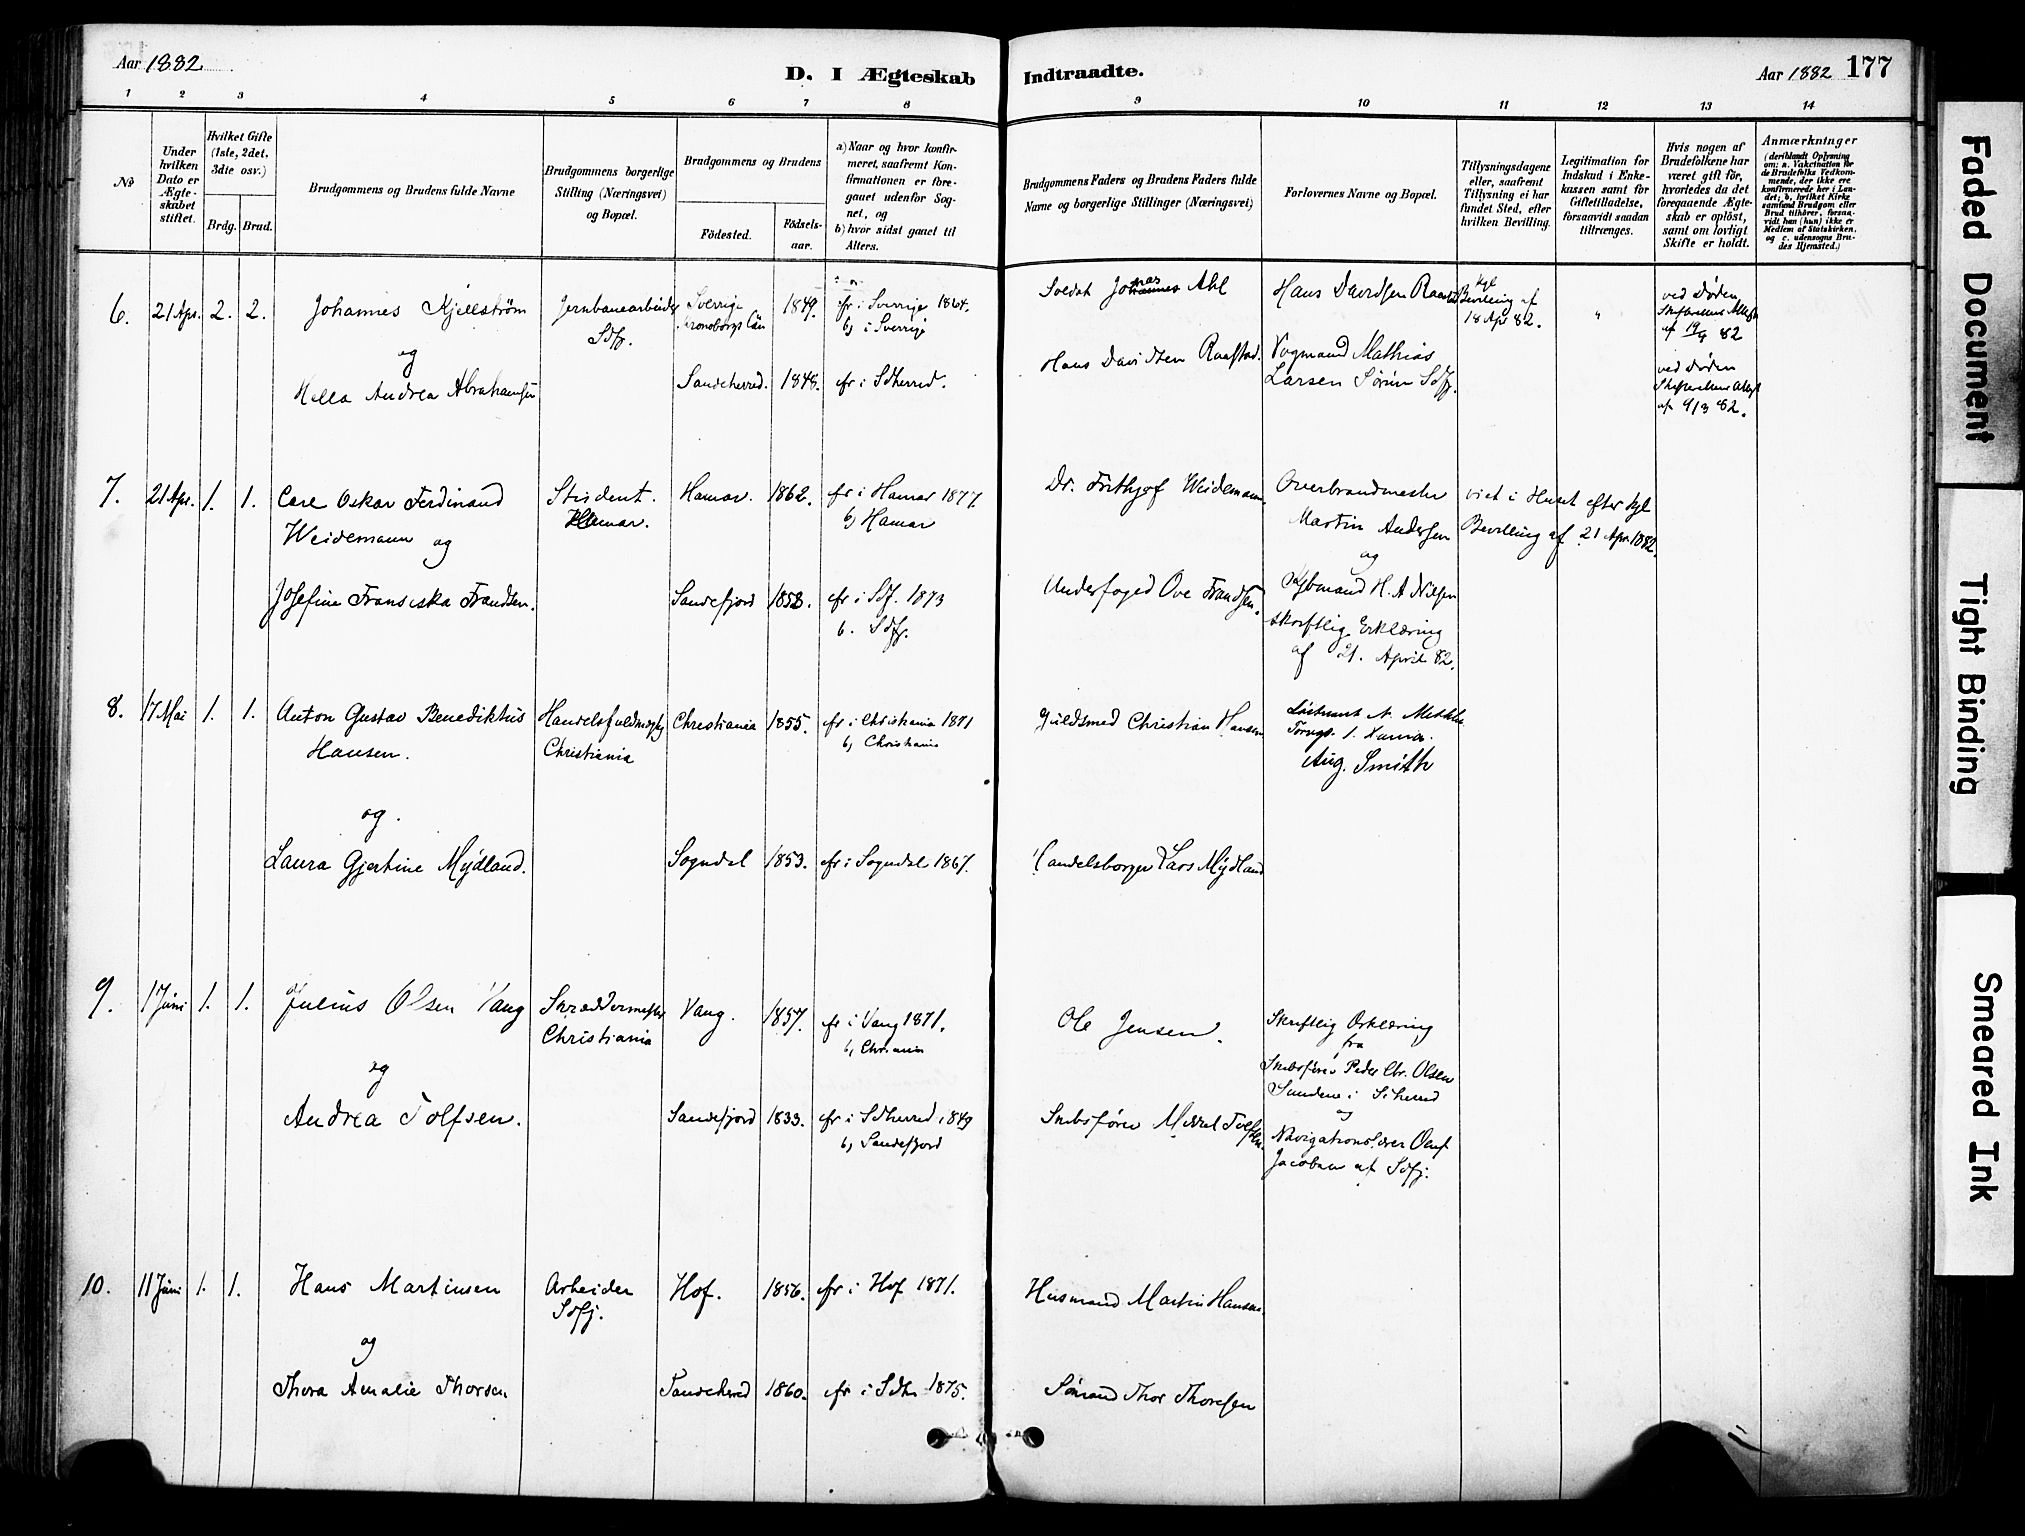 Aar 1882
D. I Ægteskab Indtraadte.
Aar 1882 177
1 2 3 4 5 6 7 8 9 10 11 12 13 14
No
Under hvilken Dato er Ægteskabet stiftet.
Hvilket Gifte (1ste, 2det, 3die osv.)
Brdg. Brud.
Brudgommens og Brudens fulde Navne
Brudgommens borgerlige Stilling (Næringsvei) og Bopæl.
Brudgommens og Brudens
Födested.
Födselsaar.
a) Naar og hvor konfirmeret, saafremt Konfirmationen er foregaaet udenfor Sognet, og
b) hvor sidst gaaet til Alters.
Brudgommens Faders og Brudens Faders fulde Navne og borgerlige Stillinger (Næringsvei)
Forlovernes Navne og Bopæl.
Tillysningsdagene eller, saafremt Tillysning ei har fundet Sted, efter hvilken Bevilling.
Legitimation for Indskud i Enkekassen samt for Giftetilladelse, forsaavidt saadan tiltrænges.
Hvis nogen af Brudefolkene har været gift för, hvorledes da det foregaaende Ægteskab er oplöst, samt om lovligt Skifte er holdt.
Anmærkninger
(deriblandt Oplysning om: a. Vakcination for de Brudefolks Vedkommende, der ikke ere konfirmerede her i Landet; b. hvilket Kirkesamfund Brudgom eller Brud tilhörer, forsaavidt han (hun) ikke er Medlem af Statskirken, og c. udensogns Brudes Hjemsted.)
6. 21 Apr. 2. 2. Johannes Kjellström
Jernbanearbeider Sdfj.
Sverrige Kronobergs Län 1849.
cfr i Sverrige 1864.
b) i Sverrige
Soldat Johannes Ahl
Hans Davidsen Raastad
Kgl Bevilling af 18 Apr 82.
"
ved Døden
82
og
Hella Andrea Abrahamsen
Sandeherred. 1848. cfr i Sdherred.
Hans Davidsen Raastad.
Vogmand Mathias Larsen Sørum Sdfj.
ved Døden
af 9/3 82.
7. 21 Apr. 1. 1. Carl Oskar Ferdinand
Weidemann og
Student.
Hamar.
Hamar. 1862. cfr i Hamar 1877.
b) Hamar
Dr. Frithjof Weidemann
Overbrandmester
Martin Andersen
og
viet i Huset efter kgl
Bevilling af 21 Apr. 1882.
Josefine Fransiska Frandsen.
Sandefjord 1858. cfr i Sdf. 1873
b. Sdfj.
Underfoged Ove Frandsen.
Kjøbmand H. A Nilsen
skriftlig Erklæring
af 21. April 82.
8. 17 Mai 1. 1. Anton Gustav Benediktus
Hansen.
Handelsfuldmægtig
Christiania
Christiania 1855. cfr i Christiania 1871
b) Christiania
Guldsmed Christian Hansen
Aug. Smith
og.
Laura Gjertine Mydland.
Sogndal 1853. cfr i Sogndal 1867.
Handelsborger Lars Mydland
9. 1 Juni 1. 1. Julius Olsen Vang
Skræddermester
Christiania
Vang. 1857. cfr i Vang 1871.
b) Chrania
Ole Jensen.
Skriftlig Erklæring
fra
Skibsfører Peder Chr. Olsen
Sundene i S.herred
og
og
Andrea Tolfsen.
Sandefjord 1833. cfr i Sdherred 1849
b) Sandefjord
Skibsfører Mikkel Tolfsen.
Navigationslærer Oluf
Jacobsen af Sdfj.
10. 11 Juni 1. 1. Hans Martinsen
Arbeider
Sdfj.
Hof. 1856. cfr i Hof 1871.
Husmand Martin Hansen.
og
Thora Amalie Thorsen
Sandeherred 1860. cfr i Sdhr 1875.
Sömand Thor Thoresen
Faded Document
Tight Binding
Smeared Ink